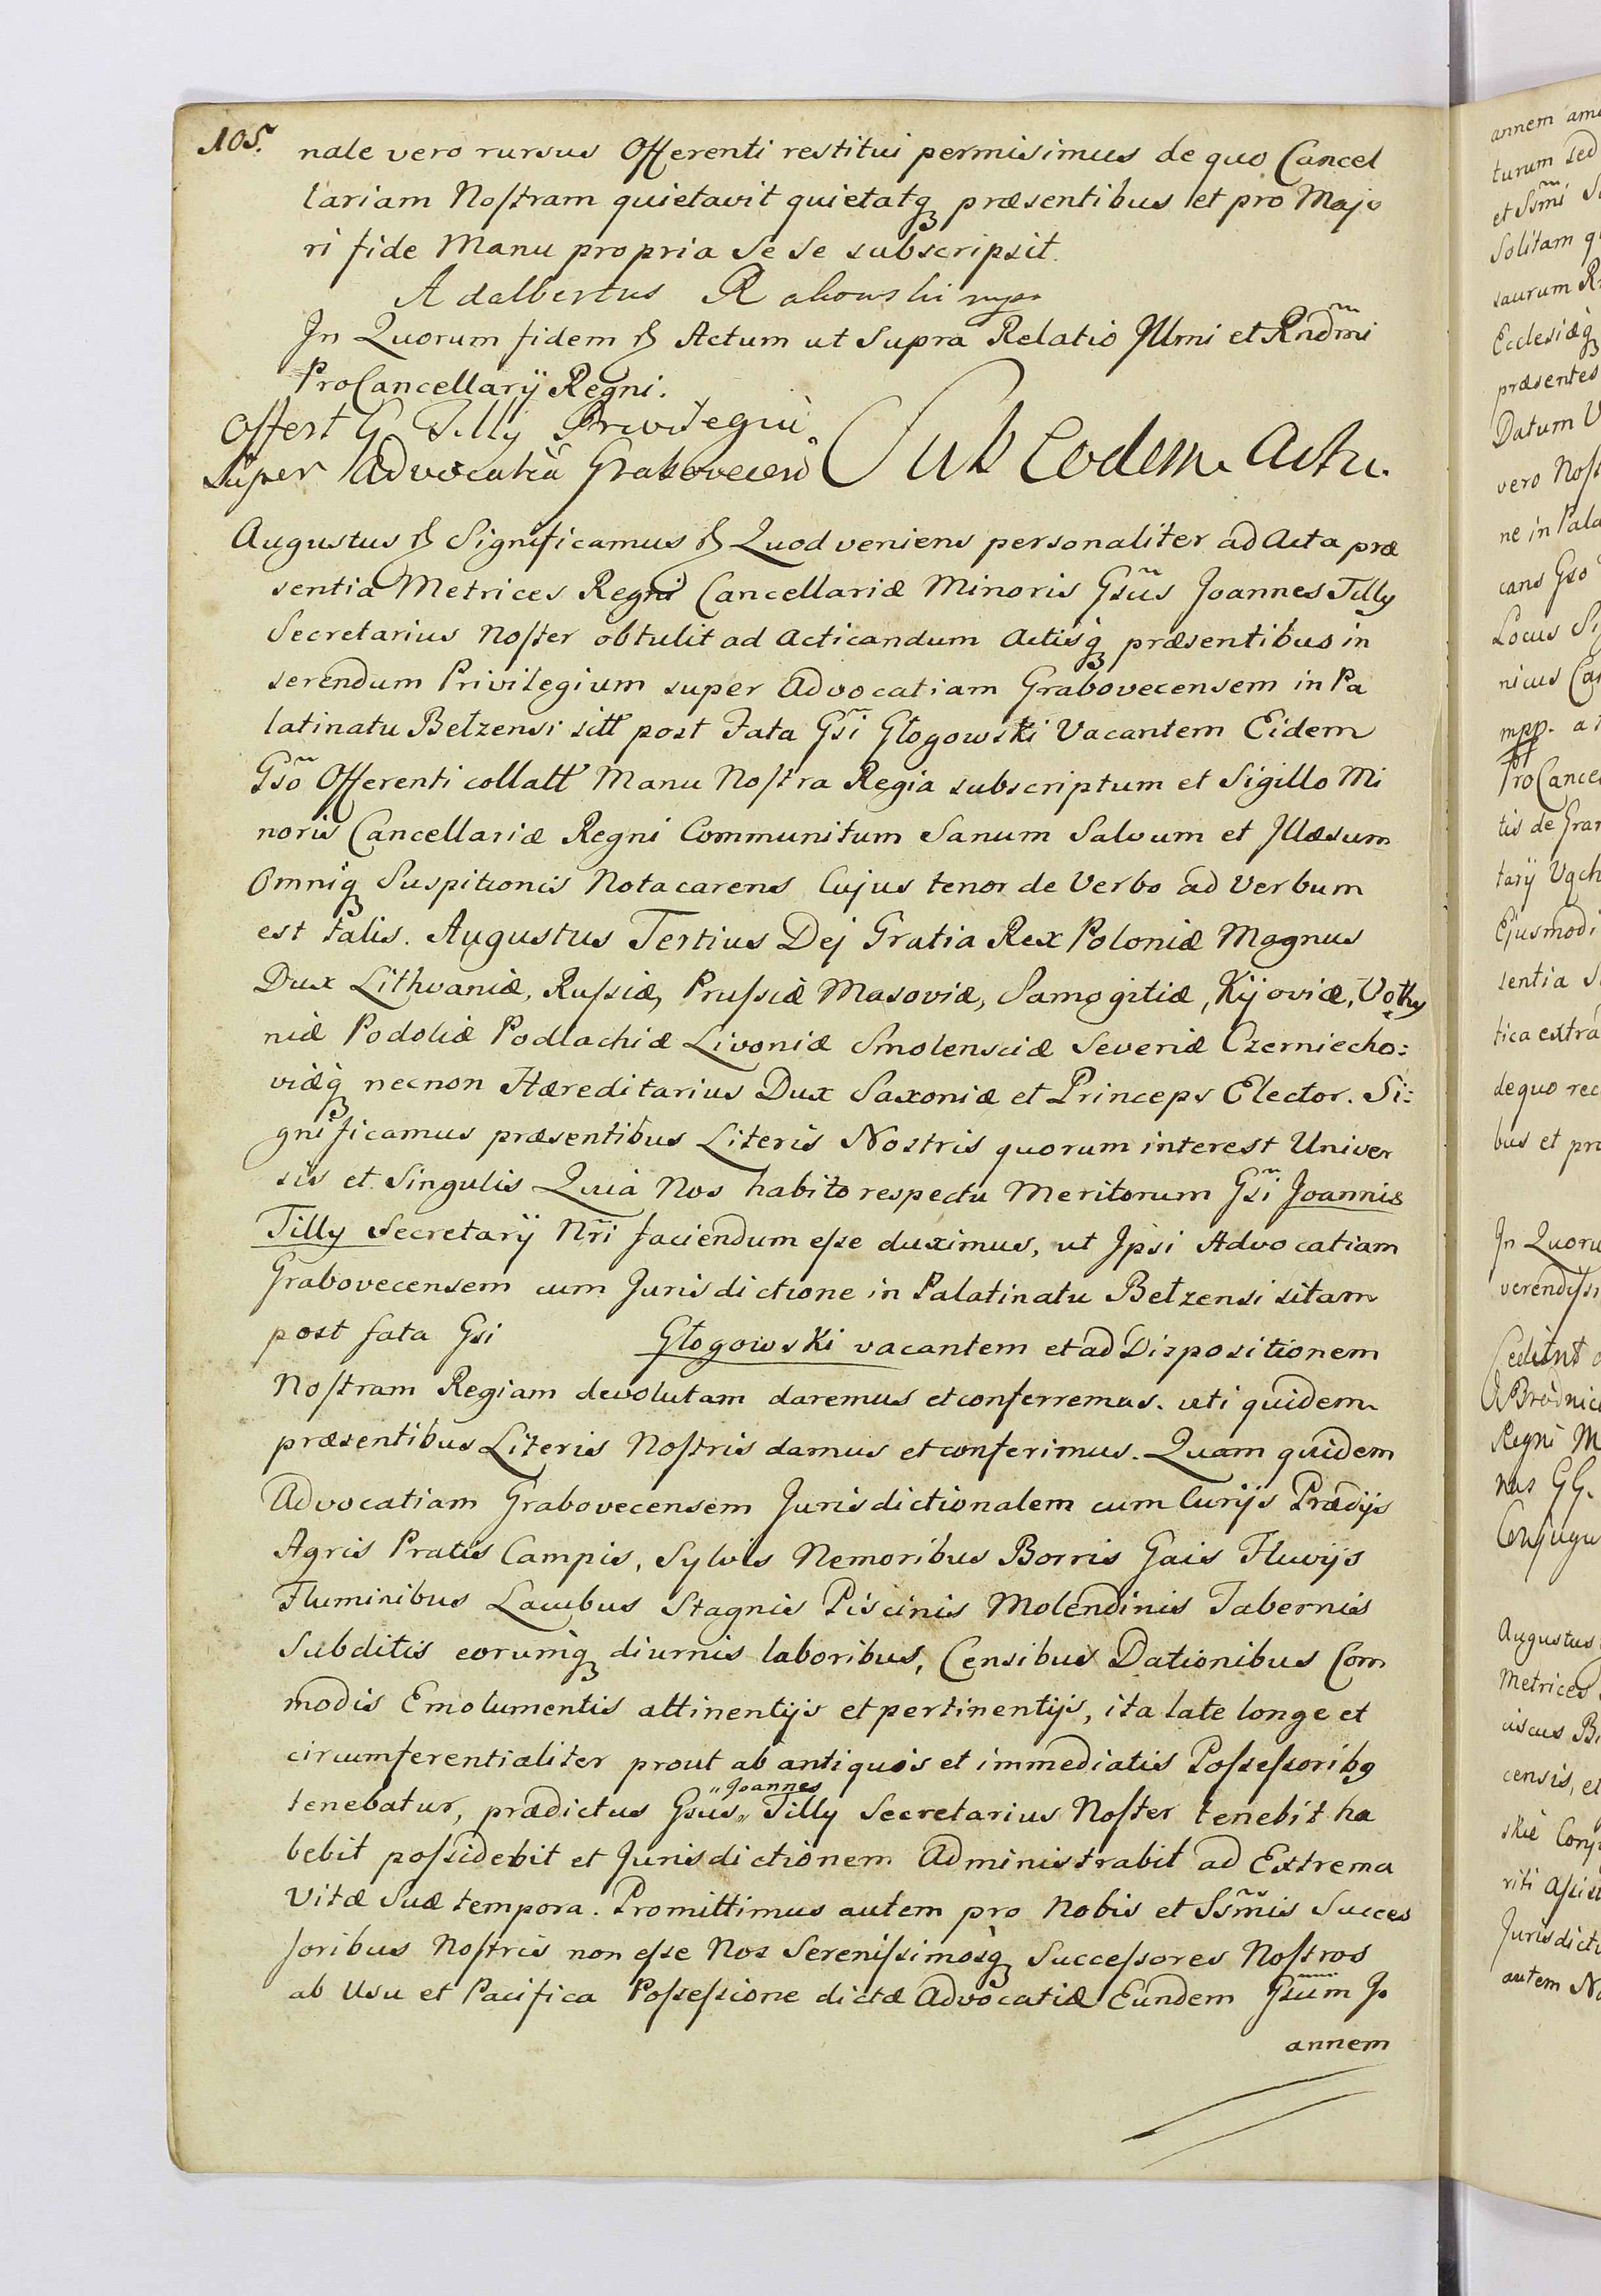 105.
nale vero rursus Offerenti restitui permisimus de quo Cancel
lariam Nostram quietavit quietatq præsentibus et pro Majo
ri fide Manu propria Se Se subscripsit.
Adalbertus Rakowski mpp
In Quorum fidem & Actum ut Supra Relatio Illmi et Rndm̃i
ProCancellarÿ Regni.
Offert G Tilly Privilegiũ
Super Advocatiã Grabovecen̄
Sub Eodem Actu.
Augustus & Significamus & Quod veniens personaliter ad Acta præ
sentia Metrices Regni Cancellariæ Minoris Gsũs Joannes Tilly
Secretarius Noster obtulit ad Acticandum Actisq præsentibus in
serendum Privilegium super Advocatiam Grabovecensem in Pa
latinatu Belzensi sitt post Fata Gsĩ Głogowski Vacantem Eidem
Gsõ Offerenti collatt Manu Nostra Regia subscriptum et Sigillo Mi
noris Cancellariæ Regni Communitum Sanum Salvum et Illæsum
Omniq Suspitionis Nota carens Cujus tenor de Verbo ad Verbum
est talis. Augustus Tertius Dej Gratia Rex Poloniæ Magnus
Dux Lithvaniæ, Russiæ, Prussiæ Masoviæ, Samogitiæ, Kijoviæ, Volhy
niæ Podoliæ Podlachiæ Livoniæ Smolensciæ Severiæ Czerniecho:
viæq necnon Hæreditarius Dux Saxoniæ et Princeps Elector. Si:
gnificamus præsentibus Literis Nostris quorum interest Univer
sis et Singulis Quia Nos habito respectu Meritorum Gsĩ Joannis
Tilly Secretarÿ Nr̃i faciendum esse duximus, ut Ipsi Advocatiam
Grabovecensem cum Jurisdictione in Palatinatu Belzensi sitam
post fata Gsi Głogowski vacantem et ad Dispositionem
Nostram Regiam devolutam daremus et conferremus. uti quidem
præsentibus Literis Nostris damus et conferimus. Quam quidem
Advocatiam Grabovecensem Jurisdictionalem cum Curijs Prædijs
Agris Pratis Campis, Sylvis Nemoribus Borris Gais Fluvijs
Fluminibus Lacubus Stagnis Piscinis Molendinis Tabernis
Subditis eorumq diurnis laboribus, Censibus Dationibus Com
modis Emolumentis attinentijs et pertinentijs, ita late longe et
circumferentialiter prout ab antiquis et immediatis Possessorib9
tenebatur, prædictus Gsus „Joannes„ Tilly Secretarius Noster tenebit ha
bebit possidebit et Jurisdictionem Administrabit ad Extrema
Vitæ Suæ tempora. Promittimus autem pro Nobis et Ssm̃is Succes
soribus Nostris non esse Nos Serenissimosq Successores Nostros
ab Usu et Pacifica Possessione dictæ Advocatiæ Eundem Gsum̃ Jo
annem
annem
turum sed
et Ssm̃i
Solitam
saurum
Ecclesiæq
præsentes
Datum
vero
ne in
cans Gso
Locus
nicus
mpp.
ProCancel
tis de
tarÿ
Ejusmodi
sentia
tica extra
de quo rec
bus et pro
In Quoru
verendissi
Regni
nus GG.
Conjugu
Augustus
Metrices
censis, et
riti
Jurisdictu
autem